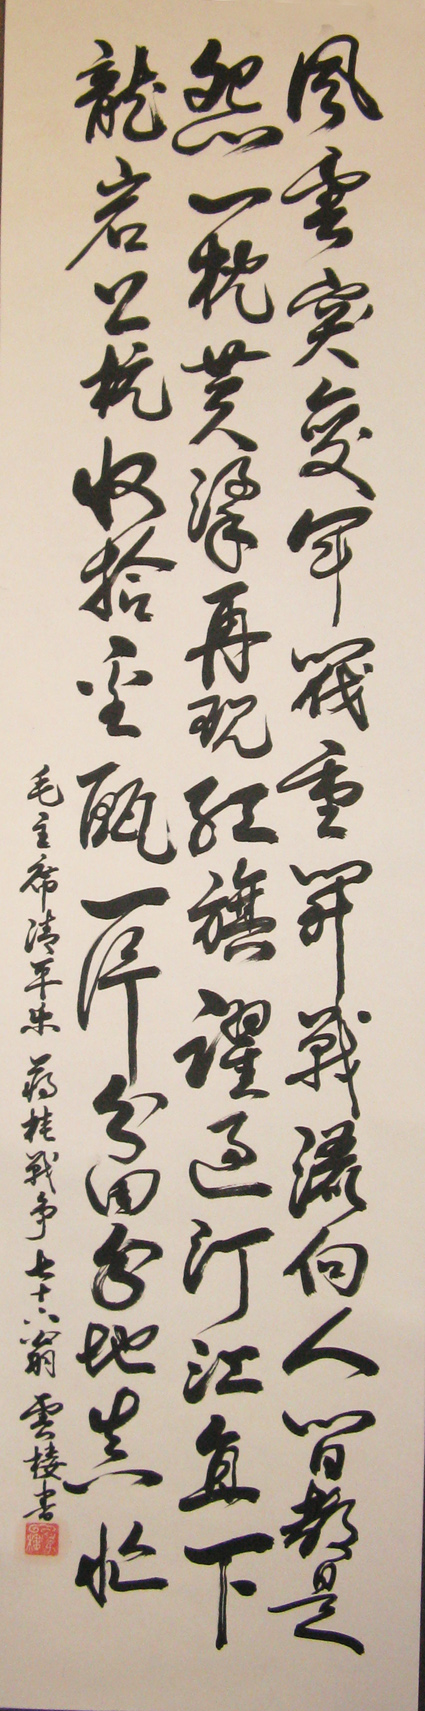 風雲突變軍閥重開戰灑向人間都是
怨一枕黄粱再現紅旗躍過汀江直下
龍岩上杭收拾金甌一片分田分地真忙
毛主席清平樂 蔣桂戰争 七十六翁 雲樓書